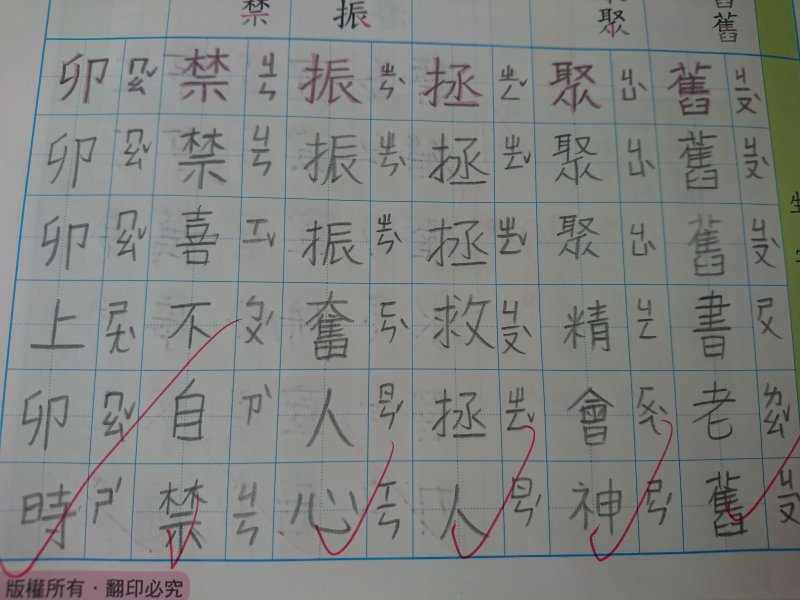 舊舊
舊舊舊書老舊
ㄐㄧㄡˋ ㄐㄧㄡˋ ㄐㄧㄡˋ ㄕㄨ ㄌㄠˇ ㄐㄧㄡˋ
聚
聚聚聚精會神
ㄐㄩˋ ㄐㄩˋ ㄐㄩˋ ㄐㄧㄥ ㄏㄨㄟˋ ㄕㄣˊ
拯拯拯救拯人
ㄓㄥˇ ㄓㄥˇ ㄓㄥˇ ㄐㄧㄡˋ ㄓㄥˇ ㄖㄣˊ
振
振振振奮人心
ㄓㄣˋ ㄓㄣˋ ㄓㄣˋ ㄈㄣˋ ㄖㄣˊ ㄒㄧㄣ
禁
禁禁喜不自禁
ㄐㄧㄣ ㄐㄧㄣ ㄒㄧˇ ㄅㄨˋ ㄗˋ ㄐㄧㄣ
卯卯卯上卯時
ㄇㄠˇ ㄇㄠˇ ㄇㄠˇ ㄕㄤˋ ㄇㄠˇ ㄕˊ
版權所有·翻印必究